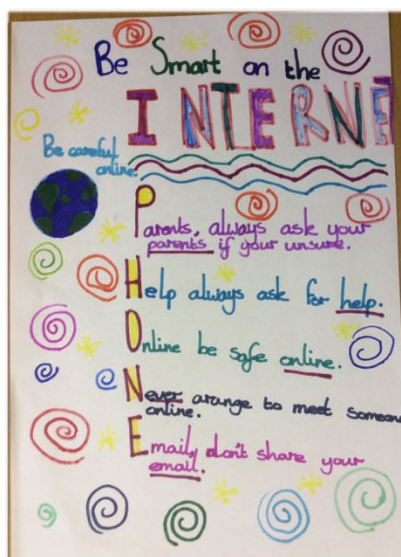 Be Smart on the
INTERNE
Be careful
online.
Parents, always ask your
parents if your unsure.
Help always ask for help.
Online be safe online.
Never arange to meet someone
online.
Email, don't share your
email.